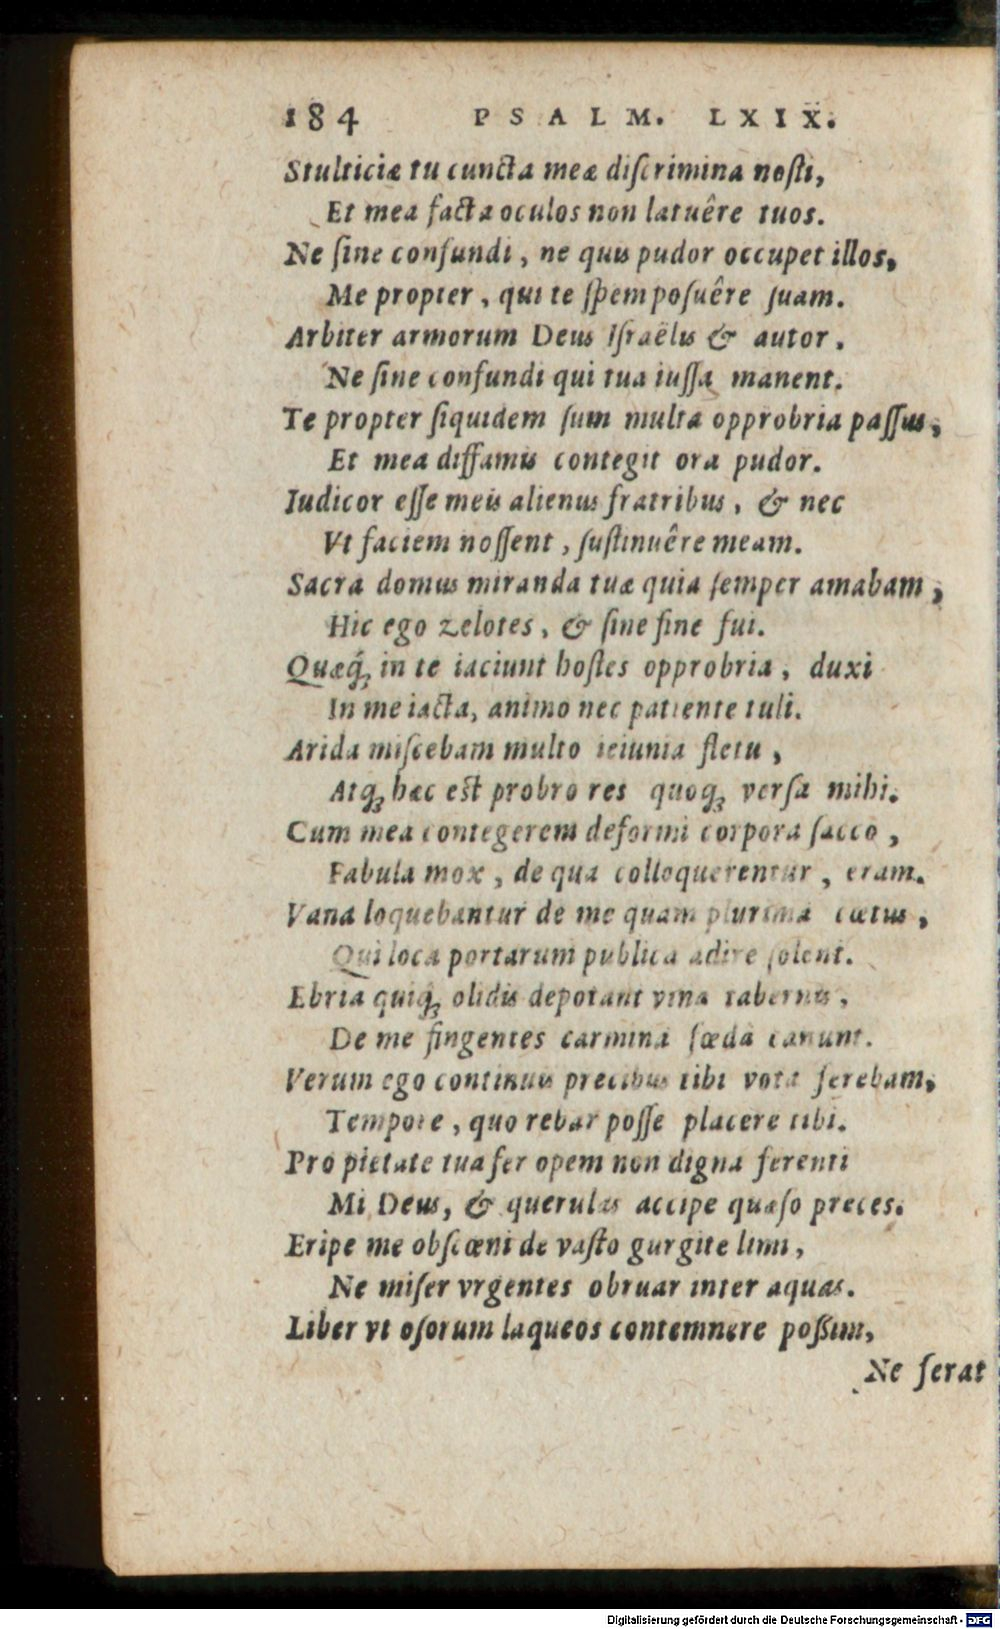 184 PSALM. LXIX.
Stulticiæ tu cuncta meæ diſcrimina noſti,
Et mea facta oculos non latuêre tuos.
Ne ſine confundi, ne quis pudor occupet illos,
Me propter, qui te ſpem poſuêre ſuam.
Arbiter armorum Deus Iſraëlis & autor,
Ne ſine confundi qui tua iuſſa manent.
Te propter ſiquidem ſum multa opprobria paſſus,
Et mea diffamis contegit ora pudor.
Iudicor eſſe meis alienus fratribus, & nec
Vt faciem noſſent, ſuſtinuêre meam.
Sacra domus miranda tuæ quia ſemper amabam,
Hic ego zelotes, & ſine fine fui.
Quæq́; in te iaciunt hoſtes opprobria, duxi
In me iacta, animo nec patiente tuli.
Arida miſcebam multo ieiunia fletu,
Atq; hæc eſt probro res quoq; verſa mihi.
Cum mea contegerem deformi corpora ſacco,
Fabula mox, de qua colloquerentur, eram.
Vana loquebantur de me quam plurima cœtus,
Qui loca portarum publica adire ſolent.
Ebria quiq; olidis depotant vina tabernis,
De me fingentes carmina fœda canunt.
Verum ego continuis precibus tibi vota ferebam,
Tempore, quo rebar poſſe placere tibi.
Pro pietate tua fer opem non digna ferenti
Mi Deus, & querulas accipe quæſo preces.
Eripe me obſcœni de vaſto gurgite limi,
Ne miſer vrgentes obruar inter aquas.
Liber vt oſorum laqueos contemnere poßim,
Ne ferat
Digitalisierung gefördert durch die Deutsche Forschungsgemeinschaft - DFG